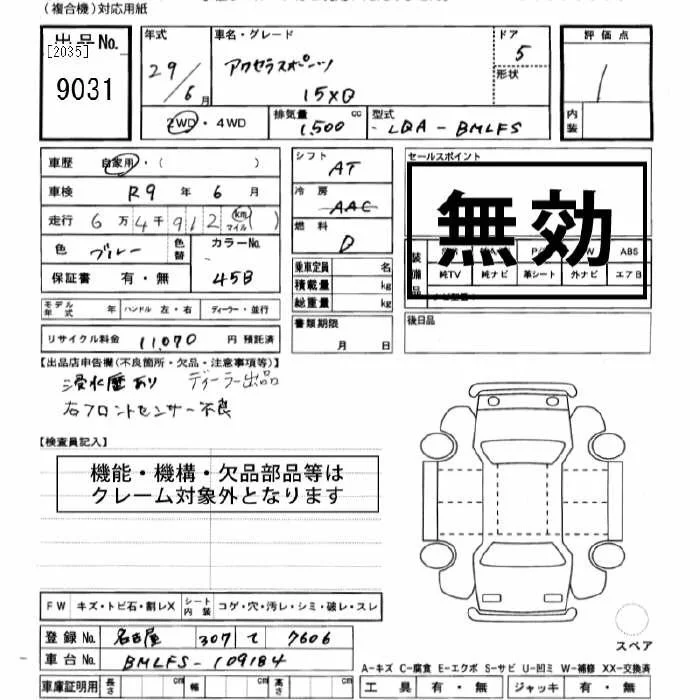 （複合機）対応用紙
出品No.
[2035]
9031
年式
29/6月
車名・グレード
アクセラスポーツ
15XD
ドア
5
形状
評価点
1
内装
2WD・4WD
排気量
1,500cc
型式
-LDA-BMLFS
車歴 自家用・（　　　）
車検 R9年6月
走行 6万4千912km マイル（　）
色 ブルー 色替 カラーNo. 45B
保証書 有・無
モデル年式 年 ハンドル 左・右 ディーラー・並行
リサイクル料金 11,070 円 預託済
シフト
AT
冷房
AAC
燃料
D
乗車定員 名
積載量 kg
総重量 kg
書類期限
月 日
セールスポイント
無効
装備品
ABS
純TV 純ナビ 革シート 外ナビ エアB
後日品
【出品店申告欄(不良箇所・欠品・注意事項等)】
浸水歴あり ディーラー出品
右フロントセンサー不良
【検査員記入】
機能・機構・欠品部品等は
クレーム対象外となります
FW キズ・トビ石・割レX シート内装 コゲ・穴・汚レ・シミ・破レ・スレ
登録No. 名古屋 307 て 7606
車台No. BMLFS-109184
車庫証明用 長さ cm 幅 cm 高さ cm
スペア
A-キズ C-腐食 E-エクボ S-サビ U-凹ミ W-補修 XX-交換済
工具 有・無 ジャッキ 有・無